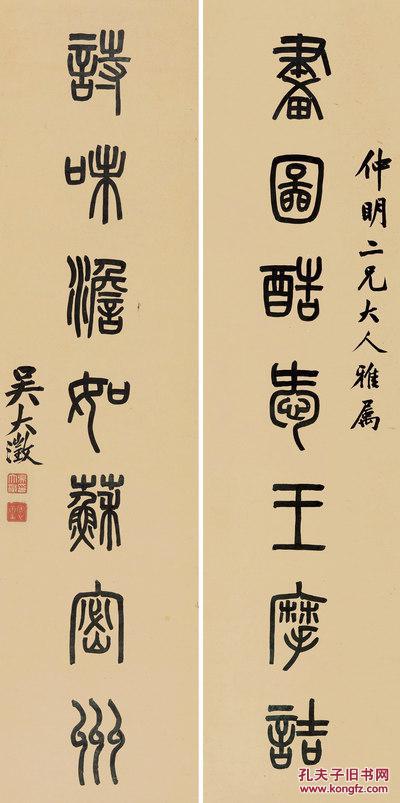 仲明二兄大人雅属
畫圖酷愛王摩詰
詩味澹如蘇密州
吳大澂
孔夫子旧书网
www.kongfz.com